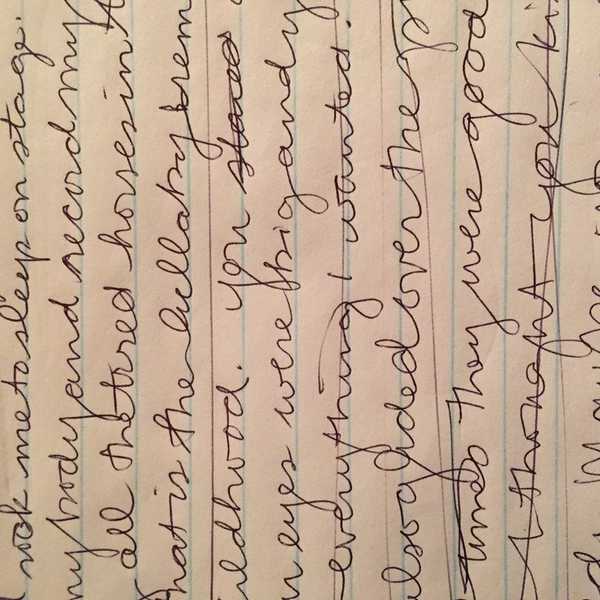 rock me to sleep on stage.
my body and record my
all the tired horses in t
hat is the lullaby
ildhood. You stared
n eyes were big and y
everything I wanted.
also over the p
times they were good
I thought you ki
maybe